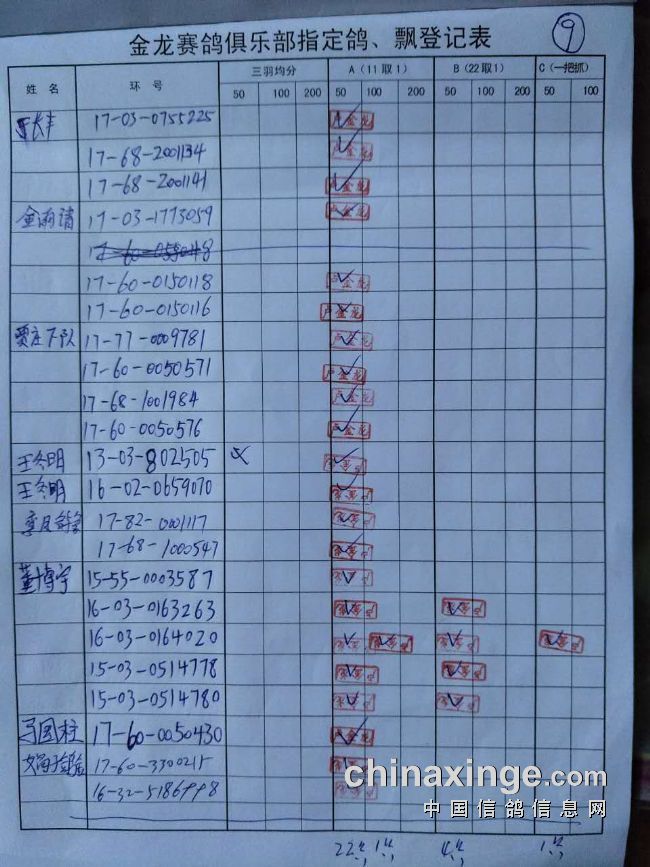 金龙赛鸽俱乐部指定鸽、飘登记表
9
姓名 环号 三羽均分 A（11取1） B（22取1） C（一把抓）
50 100 200 50 100 200 50 100 200 50 100
17-03-0755225
17-68-2001134
17-68-2001141
17-03-1773059
17-60-0150118
17-60-0150116
17-77-0009781
17-60-0050571
17-68-1001984
17-60-0050576
王冬明 13-03-802505
王冬明 16-02-0659070
17-82-0001117
17-68-1000547
董博宇 15-55-0003587
16-03-0163263
16-03-0164020
15-03-0514778
15-03-0514780
马国柱 17-60-0050430
17-60-3300215
16-32-5186998
chinaxinge.com
中国信鸽信息网